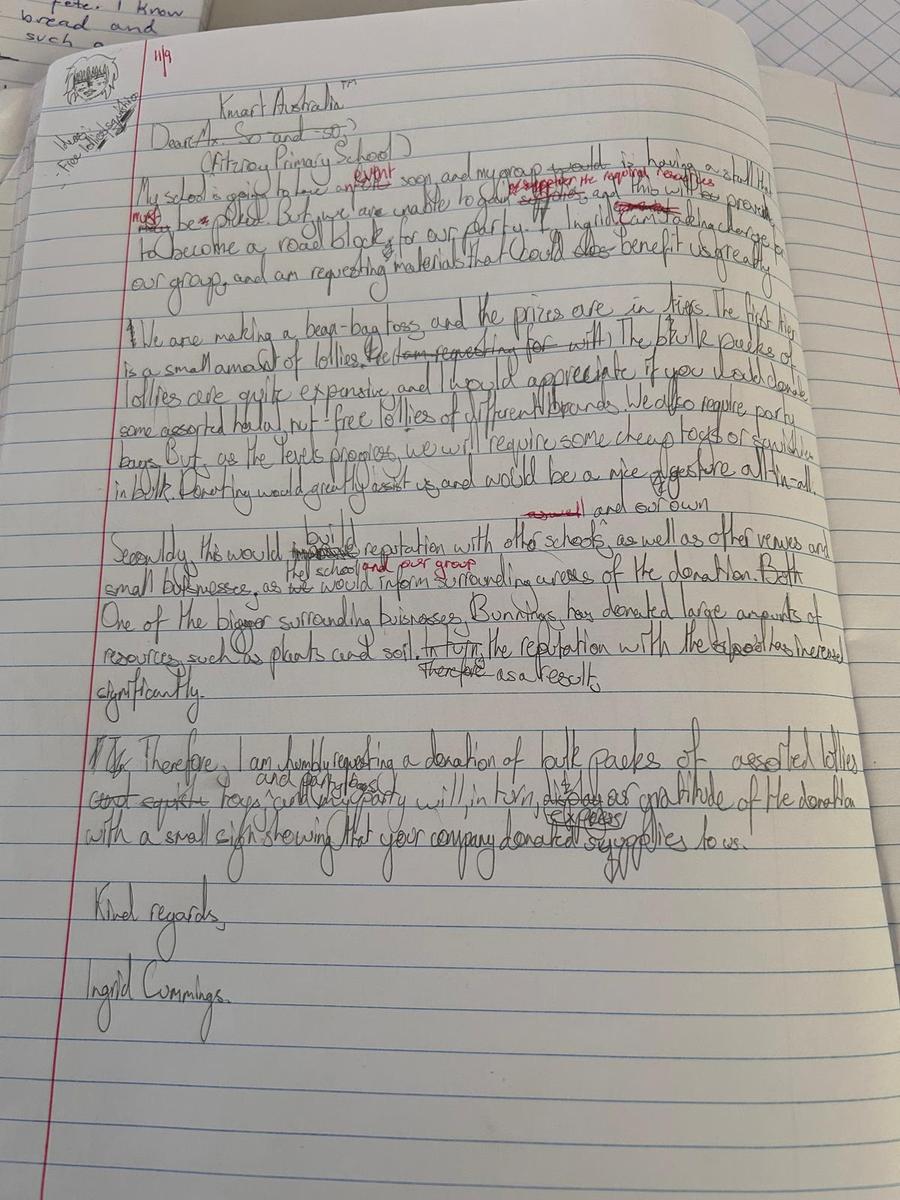 fete. I know
bread and
such a
11/9
Kmart Australia™
Dear Mx. So-and-so,
(Fitzroy Primary School)
My school is going to have an event soon, and my group is having a stall that
must be picked. But, we are unable to gain the required resources, and this will prevent
to become a road block for our party. I, Ingrid am taking charge for
our group, and am requesting materials that could benefit us greatly
We are making a bean-bag toss, and the prizes are in tiers. The first tier
is a small amount of lollies. The bulk packs of
lollies are quite expensive, and I would appreciate if you would donate
some assorted halal, nut-free lollies of different brands. We also require party
bags. But, as the levels progress, we will require some cheap toys or squishies
in bulk. Donating would greatly assist us, and would be a nice gesture all-in-all.
and our own
Secondly, this would build reputation with other schools, as well as other venues and
small businesses, as the school and our group would inform surrounding areas of the donation.
One of the bigger surrounding buisnesses, Bunnings, has donated large amounts of
resources, such as plants and soil. as a result, the reputation with the school has increased
significantly.
Therefore, I am humbly requesting a donation of bulk packs of assorted lollies
and party bags
toys, and my party will, in turn, express as gratitude of the donation
with a small sign showing that your company donated supplies to us.
Kind regards,
Ingrid Cummings.